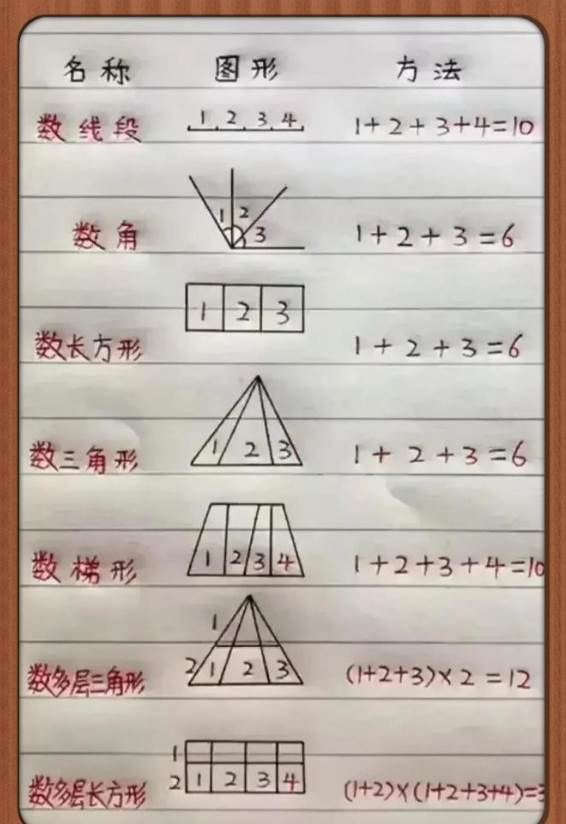 名称 图形 方法
数线段 1 2 3 4 1+2+3+4=10
数角 1 2 3 1+2+3=6
数长方形 1 2 3 1+2+3=6
数三角形 1 2 3 1+2+3=6
数梯形 1 2 3 4 1+2+3+4=10
1
数多层三角形 2 1 2 3 (1+2+3)×2=12
1
数多层长方形 2 1 2 3 4 (1+2)×(1+2+3+4)=3